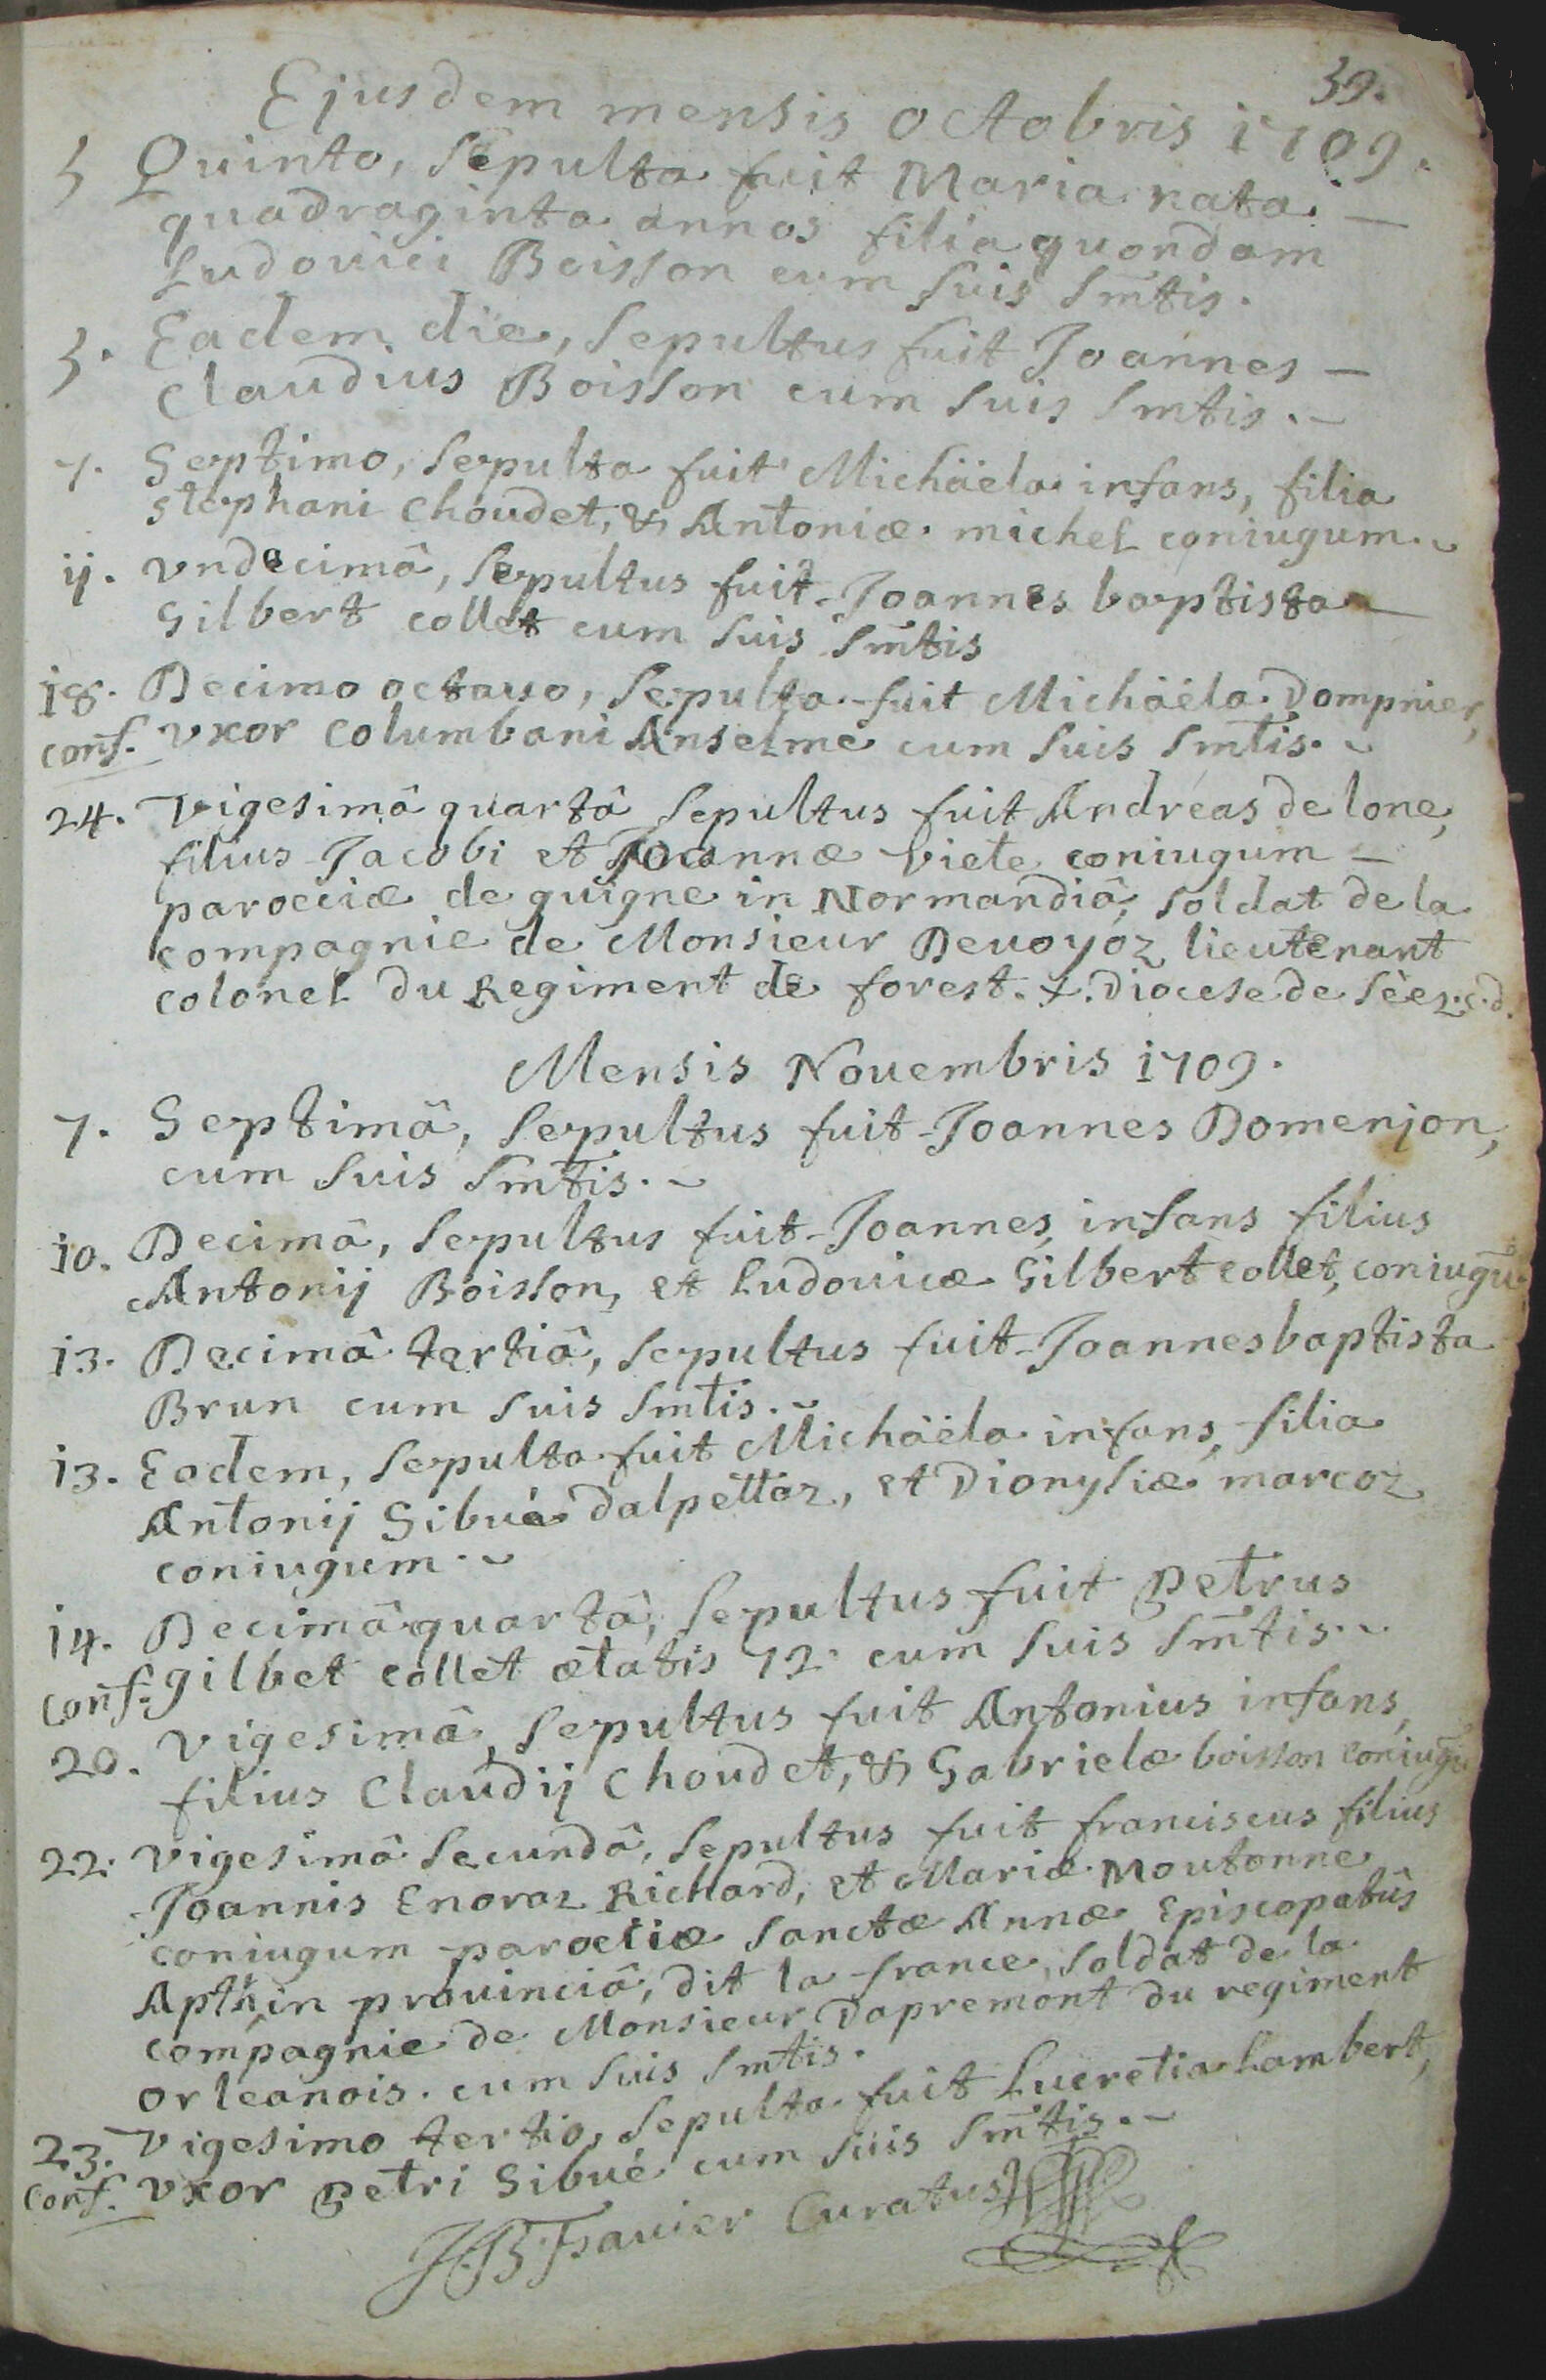 39.
Ejusdem mensis octobris 1709.
5 Quinto, sepulta fuit Maria nata
quadraginta annos filia quondam
Ludovici Boisson cum suis smtis.
5. Eadem die, sepultus fuit Joannes
Claudius Boisson cum suis smtis.
7. Septimo, sepulta fuit Michäela infans, filia
stephani Choudet, & Antoniæ michel coniugum.
ij. vndecimâ, sepultus fuit Joannes baptista
Gilbert collet cum suis smtis
18. Decimo octauo, sepulta fuit Michäela Dompnier,
conf. vxor Columbani Anselme cum suis smtis.
24. Vigesimâ quartâ sepultus fuit Andréas de lone,
filius Jacobi et Joannæ viete coniugum
parocciæ de guigne in Normandiâ, soldat de la
compagnie de Monsieur Deuoyoz lieutenant
colonel du Regiment de forest. +. Diocese de Séez. c. d.
Mensis Nouembris 1709.
7. Septimâ, sepultus fuit Joannes Domenjon,
cum suis smtis.
10. Decimâ, sepultus fuit Joannes, infans filius
Antonij Boisson, et Ludouicæ Gilbert collet, coniugū
13. Decimâ tertiâ, sepultus fuit Joannes baptista
Brun cum suis smtis.
13. Eadem, sepulta fuit Michäela infans, filia
Antonij Sibué dalpettaz, et Dionysiæ marcoz
coniugum.
14. Decimâ quartâ, sepultus fuit Petrus
conf. gilbet collet ætatis 72. cum suis smtis.
20. Vigesimâ, sepultus fuit Antonius infans,
filius Claudij Choudet, & Gabrielæ boisson coniugū
22. Vigesimâ secundâ, sepultus fuit franciscus filius
Joannis Enoraz Richard, et Mariæ Moutonne
coniugum parociæ sanctæ Annæ Episcopatûs
Apt in prouinciâ, dit la france, soldat de la
compagnie de Monsieur Dapremont du regiment
orleanois. cum suis smtis.
23. Vigesimo tertio, sepulta fuit Lucretia Lambert,
conf. vxor Petri Sibué cum suis smtis.
J. B. Curatus